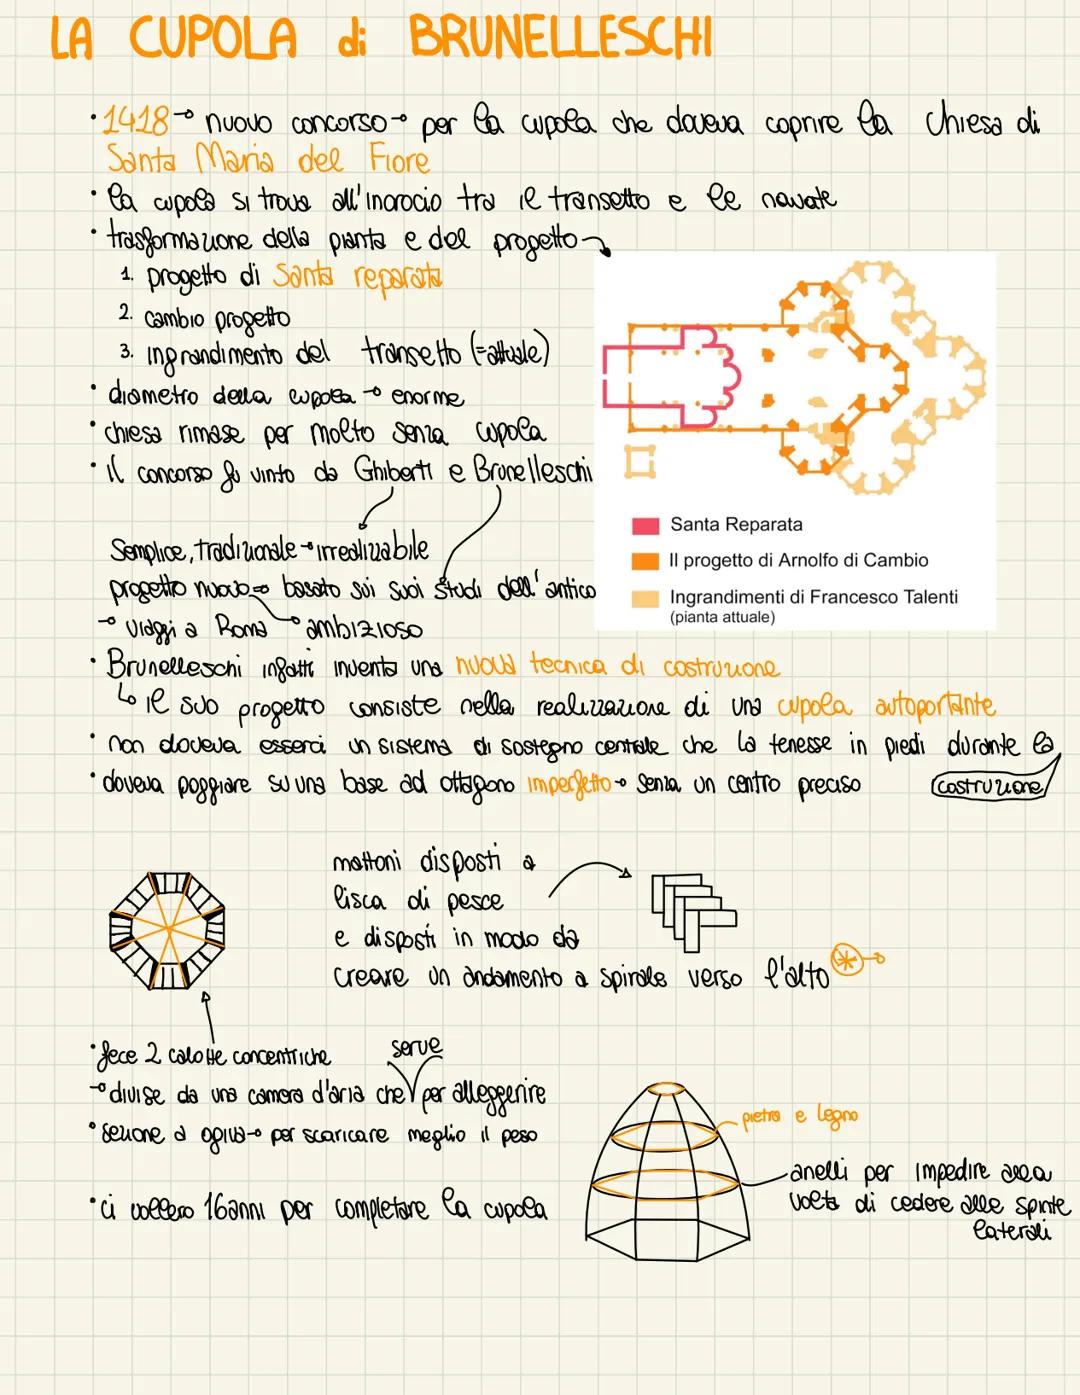 LA CUPOLA di BRUNELLESCHI
• 1418 → nuovo concorso → per la cupola che doveva coprire la chiesa di
Santa Maria del Fiore
• la cupola si trova all'incrocio tra il transetto e le navate
• trasformazione della pianta e del progetto →
1. progetto di Santa reparata
2. cambio progetto
3. ingrandimento del transetto (=attuale)
• diametro della cupola → enorme
• chiesa rimase per molto senza cupola
• il concorso fu vinto da Ghiberti e Brunelleschi
Santa Reparata
Il progetto di Arnolfo di Cambio
Ingrandimenti di Francesco Talenti
(pianta attuale)
Semplice, tradizionale → irrealizzabile
progetto nuovo → basato sui suoi studi dell'antico
→ viaggi a Roma → ambizioso
• Brunelleschi infatti inventa una nuova tecnica di costruzione
↳ il suo progetto consiste nella realizzazione di una cupola autoportante
• non doveva esserci un sistema di sostegno centrale che la tenesse in piedi durante la
costruzione
• doveva poggiare su una base ad ottagono imperfetto → senza un centro preciso
mattoni disposti a
lisca di pesce
e disposti in modo da
creare un andamento a spirale verso l'alto * →
• fece 2 calotte concentriche
→ divise da una camera d'aria che serve per alleggerire
• sezione a ogiva → per scaricare meglio il peso
• ci vollero 16 anni per completare la cupola
pietra e legno
anelli per impedire alla
volta di cedere alle spinte
laterali